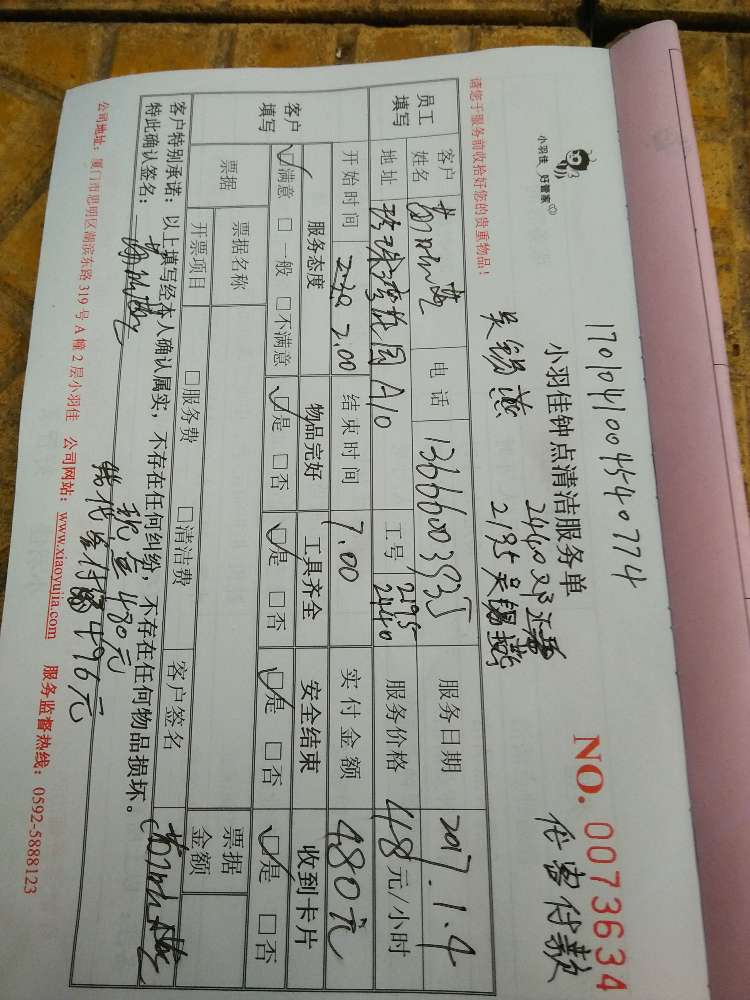 17010410045440774
小羽佳 好管家
小羽佳钟点清洁服务单
NO. 0073634
2440
2195 吴锡燕
请您于服务前收拾好您的贵重物品！
吴锡燕
员工填写
客户姓名
电话
服务日期 2017.1.4
地址 A10
工号 2195 2440
服务价格 48元/小时
开始时间 2.00
结束时间 7.00
实付金额 480元
客户填写
服务态度
物品完好
工具齐全
安全结束
收到卡片
☑满意 □一般 □不满意
☑是 □否
☑是 □否
☑是 □否
☑是 □否
票据
票据名称
开票项目
□服务费 □清洁费
客户签名
票据金额
客户特别承诺：以上填写经本人确认属实，不存在任何纠纷，不存在任何物品损坏。
特此确认签名：
480元
496元
公司地址：厦门市思明区湖滨东路319号A幢2层小羽佳 公司网站：www.xiaoyujia.com 服务监督热线：0592-5888123